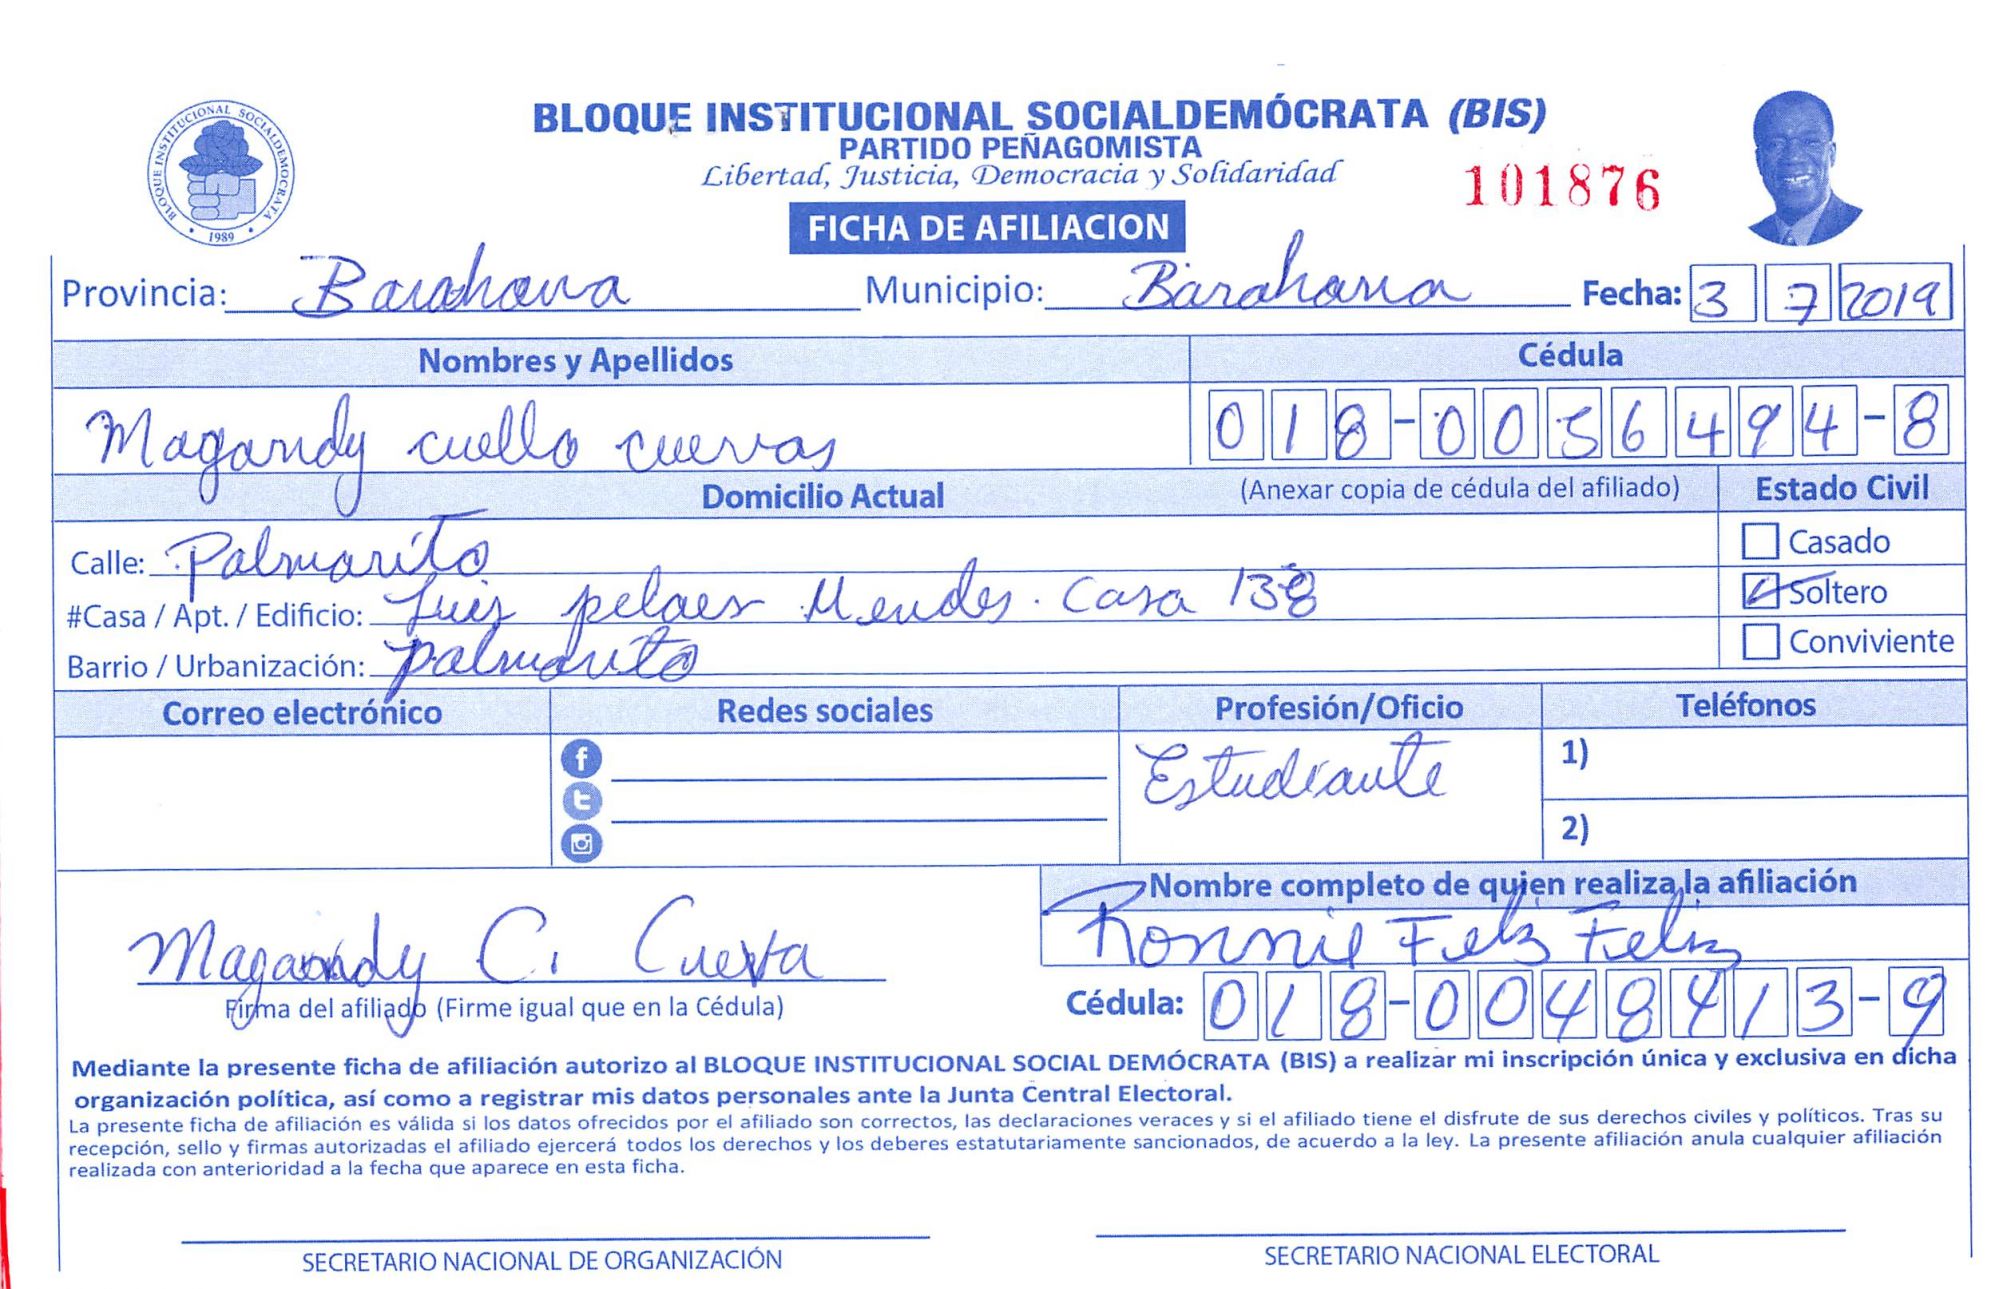 BLOQUE INSTITUCIONAL SOCIALDEMÓCRATA (BIS)
PARTIDO PEÑAGOMISTA
Libertad, Justicia, Democracia y Solidaridad
101876
BLOQUE INSTITUCIONAL SOCIALDEMOCRATA
1989
FICHA DE AFILIACION
Provincia: Barahona Municipio: Barahona Fecha: 3 7 2019
Nombres y Apellidos Cédula
Magandy cuello cuevas 018-0056494-8
Domicilio Actual (Anexar copia de cédula del afiliado) Estado Civil
Calle: Palmarito Casado
#Casa / Apt. / Edificio: Luis pelaes Mendes. Casa 138 Soltero
Barrio / Urbanización: palmarito Conviviente
Correo electrónico Redes sociales Profesión/Oficio Teléfonos
Estudiante 1)
2)
Nombre completo de quien realiza la afiliación
Magandy C. Cueva Ronnie Feliz Feliz
Firma del afiliado (Firme igual que en la Cédula) Cédula: 018-0048413-9
Mediante la presente ficha de afiliación autorizo al BLOQUE INSTITUCIONAL SOCIAL DEMÓCRATA (BIS) a realizar mi inscripción única y exclusiva en dicha
organización política, así como a registrar mis datos personales ante la Junta Central Electoral.
La presente ficha de afiliación es válida si los datos ofrecidos por el afiliado son correctos, las declaraciones veraces y si el afiliado tiene el disfrute de sus derechos civiles y políticos. Tras su
recepción, sello y firmas autorizadas el afiliado ejercerá todos los derechos y los deberes estatutariamente sancionados, de acuerdo a la ley. La presente afiliación anula cualquier afiliación
realizada con anterioridad a la fecha que aparece en esta ficha.
SECRETARIO NACIONAL DE ORGANIZACIÓN SECRETARIO NACIONAL ELECTORAL